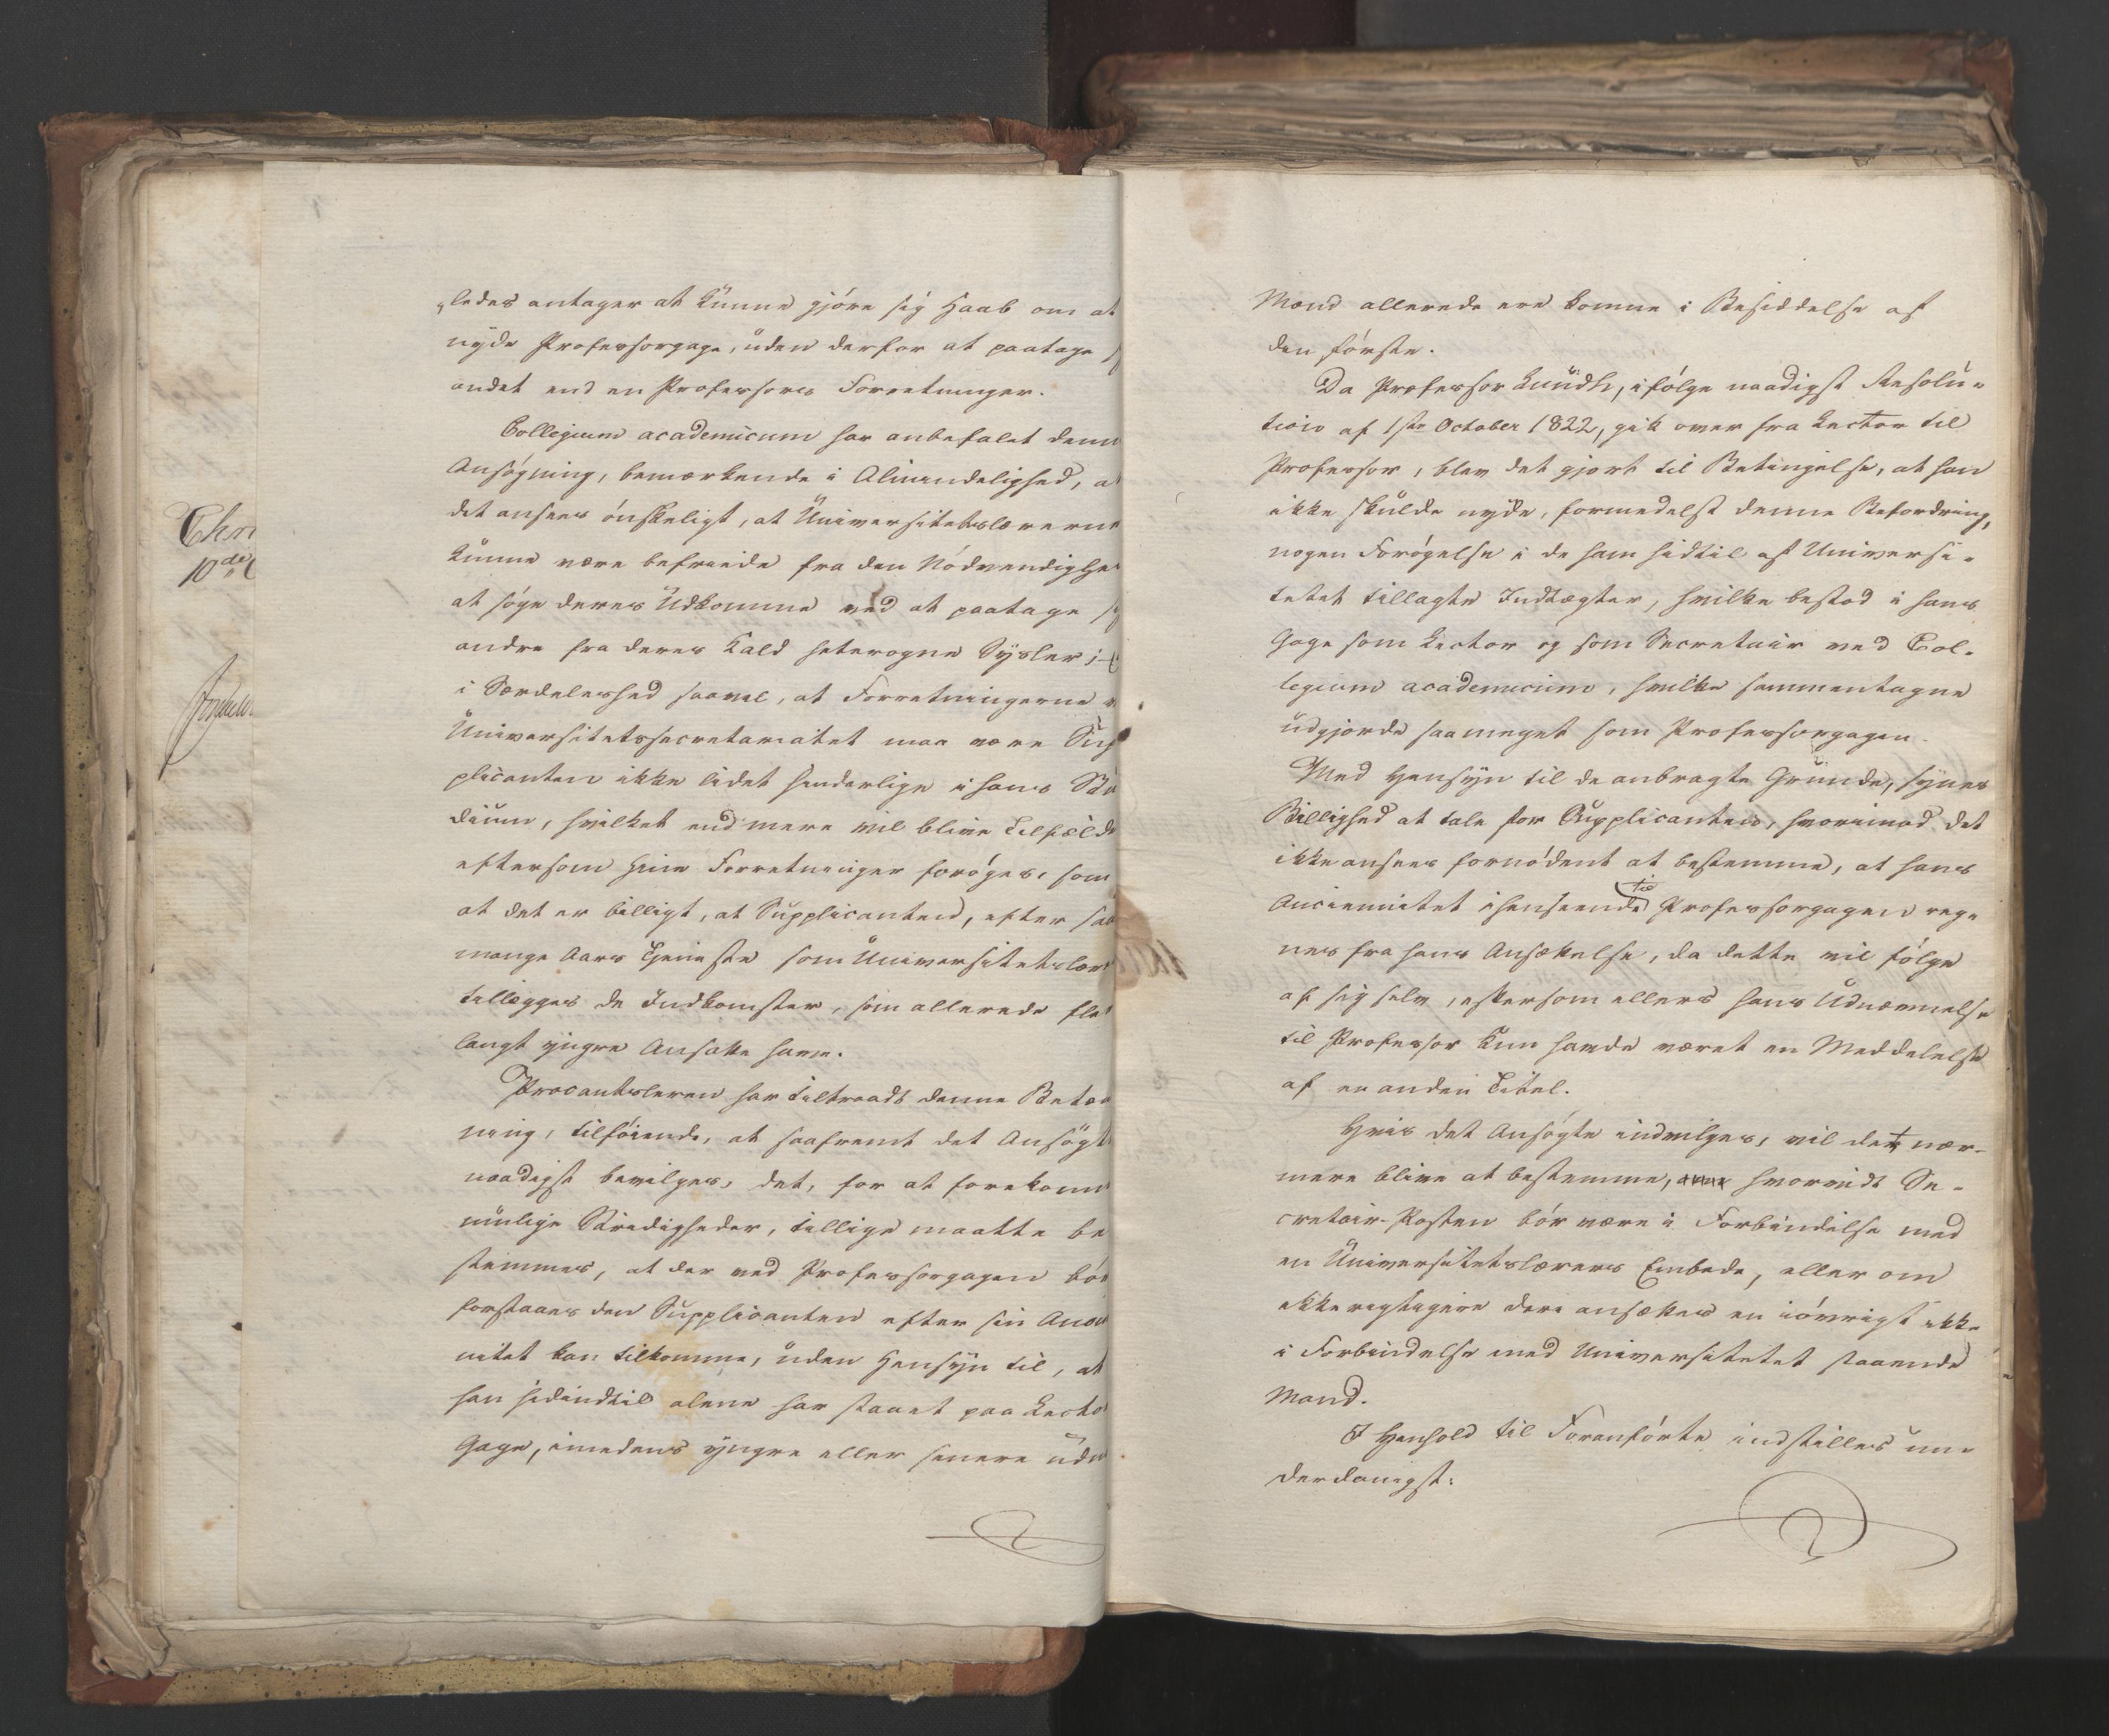 Chri
10de
„ledes antager at kunne gjöre sig Haab om at
nyde Professorgage, uden derfor at paatage s
andet end en Professors Forretninger.
Collegium academicum har anbefalet denn
Ansögning, bemærkende i Almindelighed, a
det ansees önskeligt, at Universitetslærerne
kunne være befriede fra den Nödvendighe
at söge deres Udkomme ved at paatage si
andre fra deres Kald heterogne Sysler;
i Særdeleshed saavel, at Forretningerne v
Universitetssecretariatet maa være Sup
plicanten ikke lidet hinderlige i hans Stu
dium, hvilket end mere vil blive Tilfælde
eftersom hine Forretninger foröges, som
at det er billigt, at Supplicanten, efter saa
mange Aars Tjeneste som Universitetslær
tillægges de Indkomster, som allerede fle
langt yngre Ansatte have.
Procantsleren har tiltraadt denne Betæn
ning, tilföiende, at saafremt det Ansögte
naadigst bevilges, det, for at forekomm
mulige Stridigheder, tillige maatte be
stemmes, at der ved Professorgagen bör
forstaaes den Supplicanten efter sin Anci
nitet kan tilkomme, uden Hensyn til, at
han hidindtil alene har staaet paa Lecto
Gage, imedens yngre eller senere udn
Mænd allerede ere komne i Besiddelse af
den förste.
Da Professor Lundh, ifölge naadigst Resolu-
tion af 1ste October 1822, gik over fra Lector til
Professor, blev det gjort til Betingelse, at han
ikke skulde nyde, formedelst denne Befordring,
nogen Forögelse i de ham hidtil af Universi-
tetet tillagte Indtægter, hvilke bestod i hans
Gage som Lector og som Secretair ved Col-
legium academicum, hvilke sammentagne
udgjorde saameget som Professorgagen.
Med Hensyn til de anbragte Grunde, synes
Billighed at tale for Supplicanten, hvorimod det
ikke ansees fornödent at bestemme, at hans
Anciennitet i henseende til Professorgagen reg-
nes fra hans Ansættelse, da dette vil fölge
af sig selv, eftersom ellers hans Udnævnelse
til Professor kun havde været en Meddelelse
af en anden Titel.
Hvis det Ansögte indvilges, vil det nær-
mere blive at bestemme, hvorvidt Se-
cretair-Posten bör være i Forbindelse med
en Universitetslærers Embede, eller om
ikke rigtigere dertil ansættes en iövrigt ikke
i Forbindelse med Universitetet staaende
Mand.
I Henhold til Foranförte indstilles un-
derdanigst: